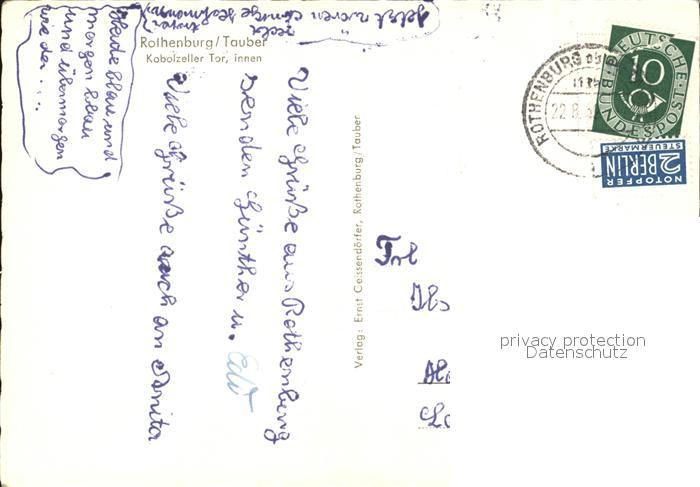 Rothenburg/Tauber
Kobolzeller Tor, innen
Viele Grüße aus Rothenburg
senden Günther u. Edi
Viele Grüße auch an Anita
Heute blau und
morgen blau
und übermorgen
wieder....
Jetzt waren
Verlag: Ernst Geissendörfer, Rothenburg/Tauber
Frl
Ils
ROTHENBURG
22.8.
DEUTSCHE
BUNDESPOST
10
NOTOPFER
2 BERLIN
STEUERMARKE
privacy protection
Datenschutz